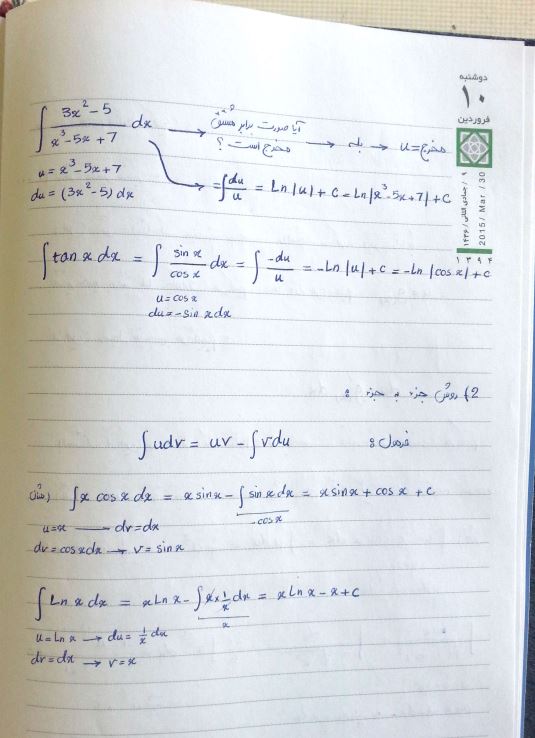 دوشنبه
۱۰
فروردین
۹ / جمادی الثانی / ۱۴۳۶
2015 / Mar / 30
۱۳۹۴
∫ (3x² - 5)/(x³ - 5x + 7) dx → آیا صورت برابر مشتق مخرج است ؟ → بله → u = مخرج
u = x³ - 5x + 7
du = (3x² - 5) dx
= ∫ du/u = Ln |u| + C = Ln |x³ - 5x + 7| + C
∫ tan x dx = ∫ sin x / cos x dx = ∫ -du/u = -Ln |u| + C = -Ln |cos x| + C
u = cos x
du = -sin x dx
2) روش جزء به جزء :
فرمول : ∫ u dv = uv - ∫ v du
مثال) ∫ x cos x dx = x sin x - ∫ sin x dx = x sin x + cos x + C
-cos x
u = x → dv = dx
dv = cos x dx → v = sin x
∫ Ln x dx = x Ln x - ∫ x × 1/x dx = x Ln x - x + C
x
u = Ln x → du = 1/x dx
dv = dx → v = x